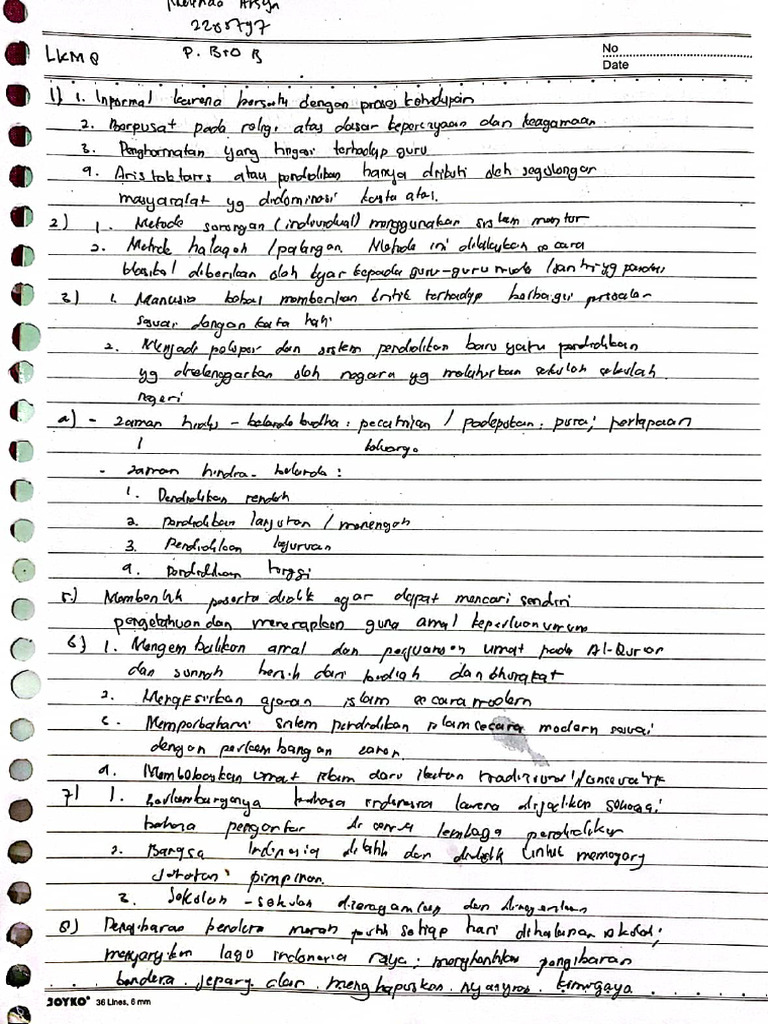 Arsya
2205797
LKM 8 P. BIO B
No
Date
1) 1. Informal karena bersatu dengan proses kehidupan
2. Berpusat pada religi atas dasar kepercayaan dan keagamaan
3. Penghormatan yang tinggi terhadap guru
4. Aristoktaris atau pendidikan hanya diikuti oleh segolongan
masyarakat yg didominasi kasta atas.
2) 1. Metode sorongan (individual) menggunakan sistem mentor
2. Metode halaqoh / Metode ini dilakukan secara
klasikal diberikan oleh kyai kepada guru-guru muda / santri yg pandai
3) 1. Manusia bebas memberikan kritik terhadap berbagai persoalan
sesuai dengan kata hati
2. Menjadi pelopor dan sistem pendidikan baru yaitu pendidikan
yg diselenggarkan oleh negara yg melahirkan sekolah sekolah
negeri
4) - zaman hindu - budha : pecatrian / padepokan, pura, pertapaan
keluarga
- zaman hindia - belanda :
1. Pendidikan rendah
2. Pendidikan lanjutan / menengah
3. Pendidikan kejuruan
4. Pendidikan tinggi
5.) Membentuk peserta didik agar dapat mencari sendiri
pengetahuan dan menerapkan guna amal keperluan umum
6) 1. Mengembalikan amal dan perjuangan umat pada Al-Quran
dan sunnah bersih dari bidiah dan khurafat
2. Menafsirkan ajaran islam secara modern
3. Memperbaharui sistem pendidikan islam secara modern sesuai
dengan perkembangan zaman.
4. Membebaskan umat islam dari ikatan tradisional/konservatif
7) 1. berkembangnya bahasa indonesia karena dijadikan sebagai
bahasa pengantar di semua lembaga pendidikan
2. Bangsa Indonesia dilatih dan dididik untuk memegang
jabatan pimpinan.
3. Sekolah - sekolah diseragamkan dan dinegerikan
8) Pengibaran bendera merah putih setiap hari dihalaman sekolah;
menyanyikan lagu indonesia raya; menghentikan pengibaran
bendera jepang dan menghapuskan nyanyian kimigayo
JOYKO 36 Lines, 6 mm